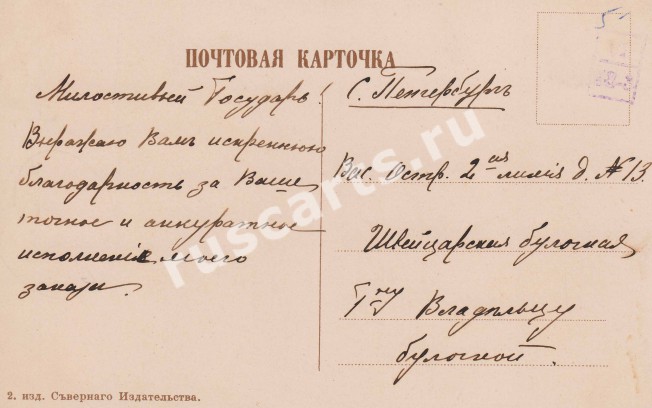 5
ПОЧТОВАЯ КАРТОЧКА
Милостивый Государь!
Выражаю Вамъ искреннюю
благодарность за Ваше
точное и аккуратное
исполненiе моего
заказа.
С. Петербургъ
Вас. Остр. 2ая линiя д. № 13.
Швейцарская булочная
Гну Владѣльцу
булочной.
2. изд. Сѣвернаго Издательства.
ruscarts.ru